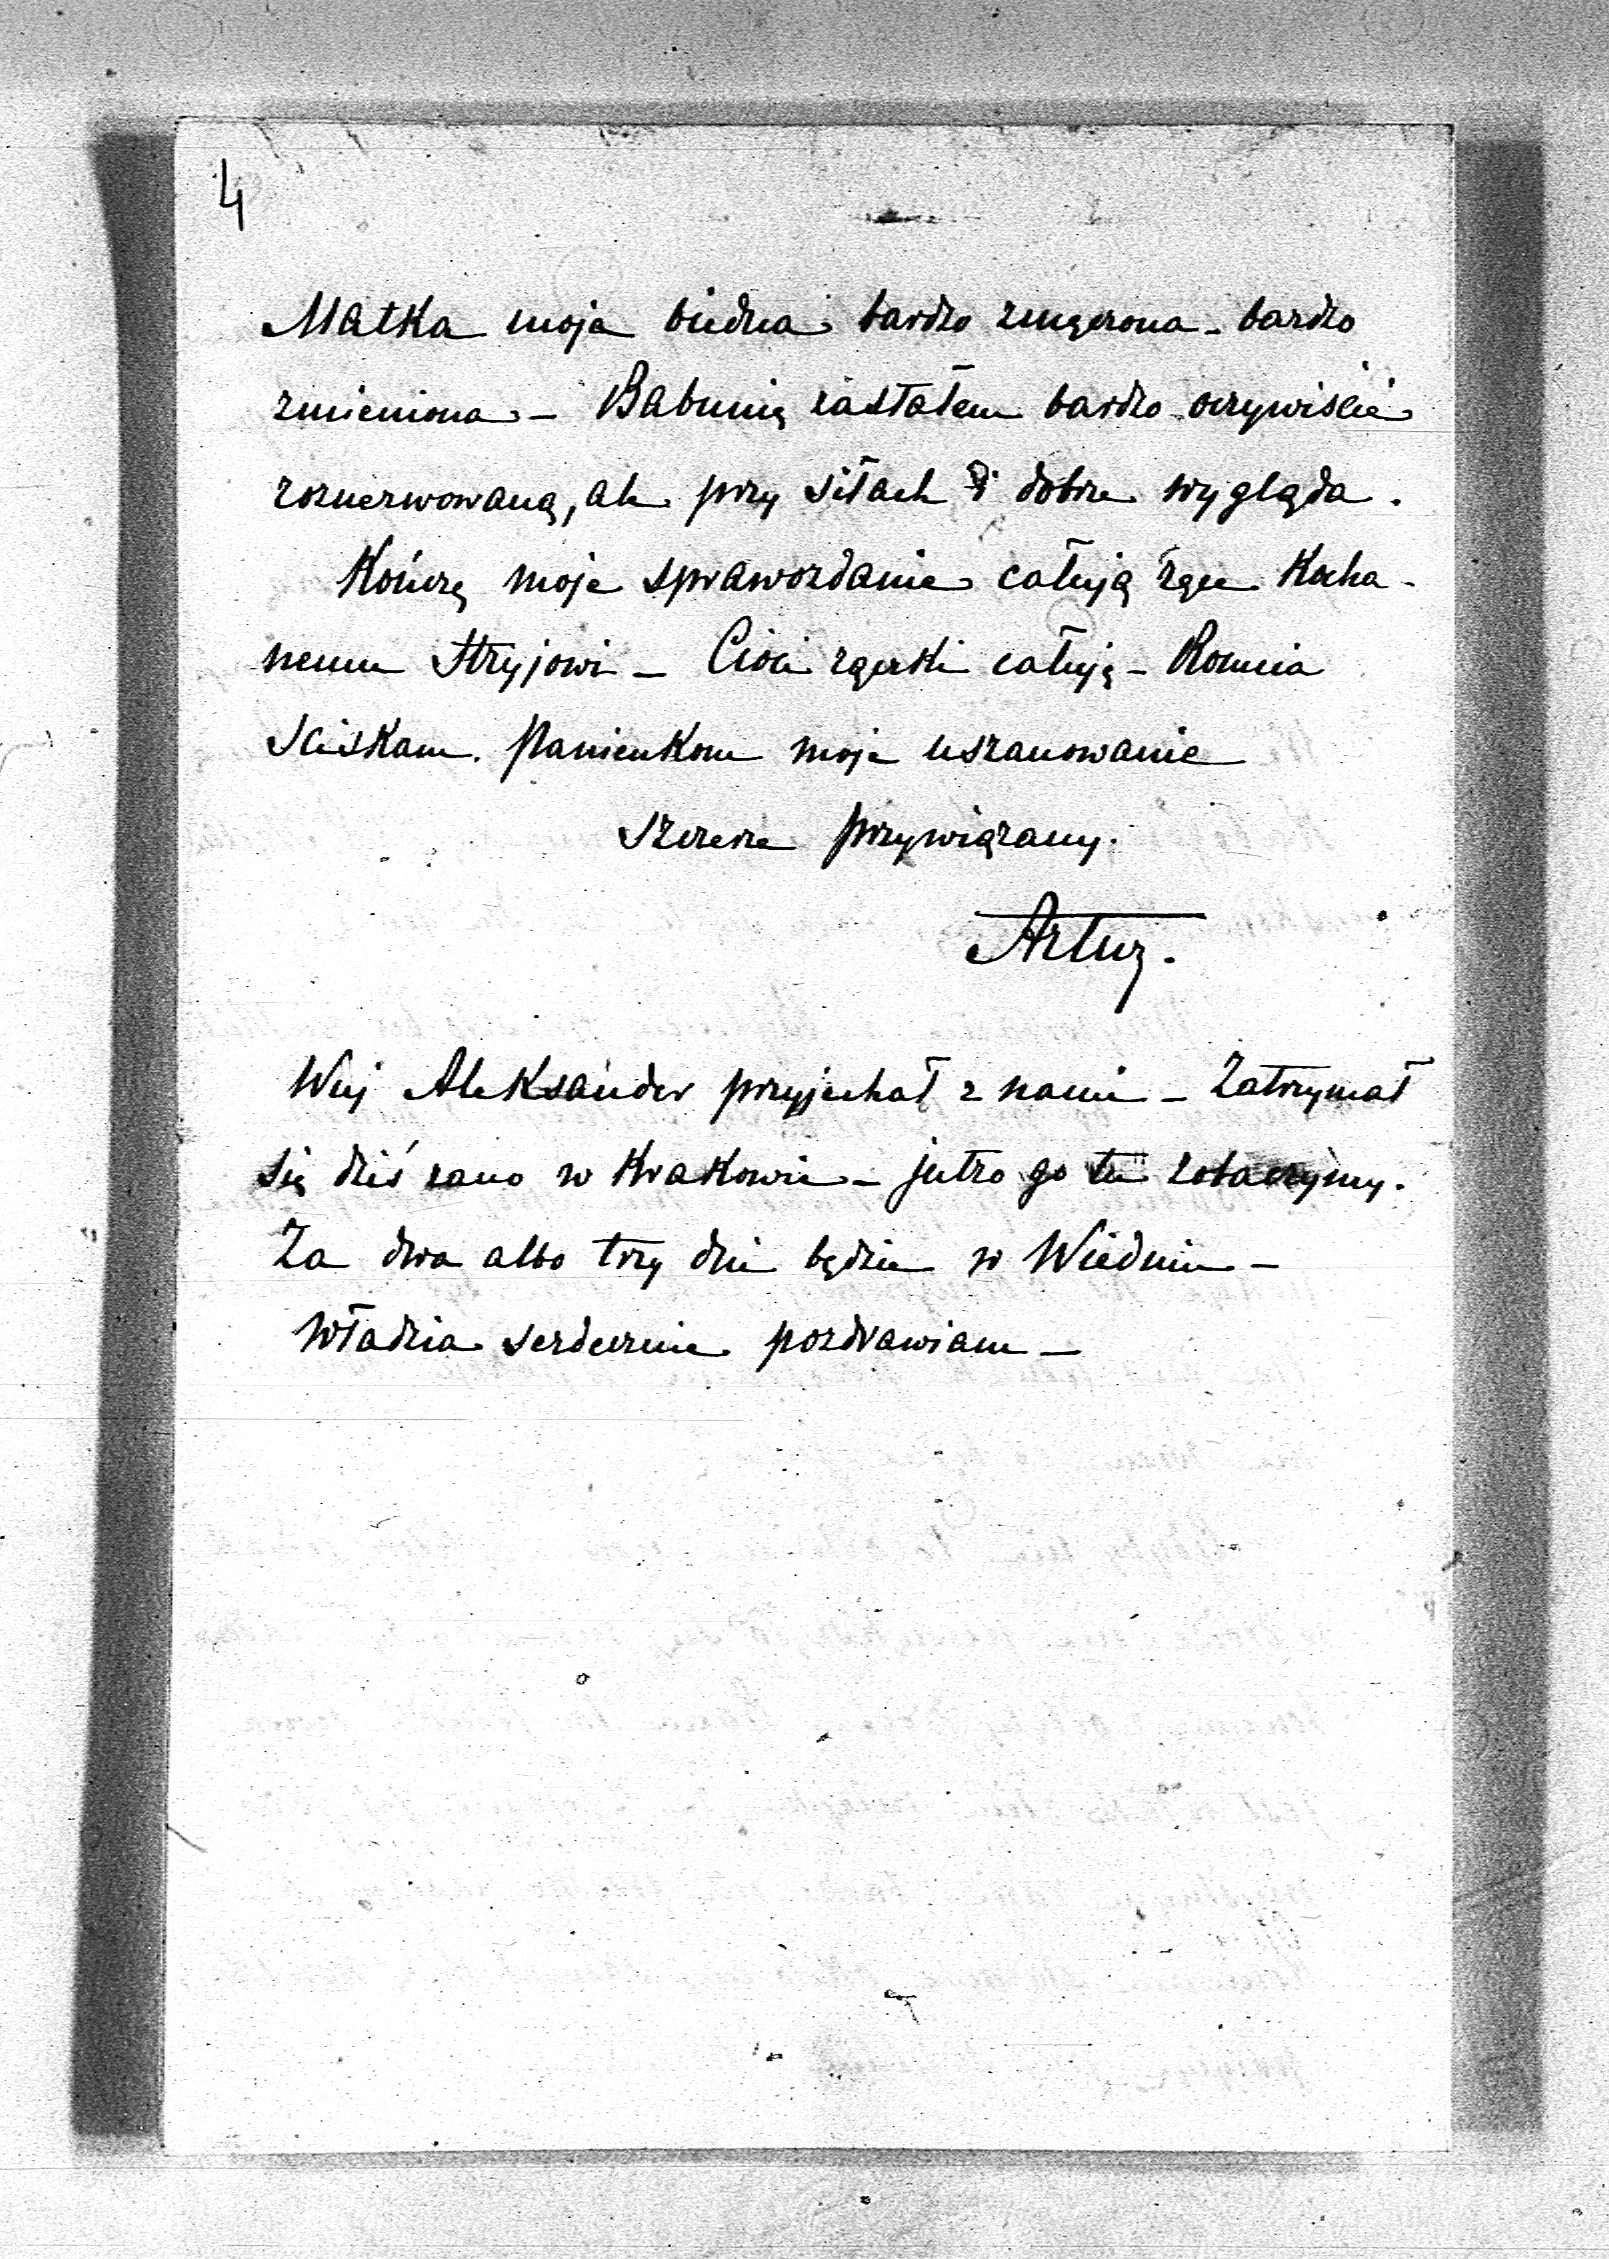 4
Matka moja biedna bardzo zmęczona - bardzo
zmieniona - Babunię zastałem bardzo oczywiście
roznerwowaną, ale przy siłach i dobrze wygląda.
Kończę moje sprawozdanie całują ręce Kocha-
nemu Stryjowi - Cioci rączki całuję - Romcia
sciskam. Panienkom moje uszanowanie
szczerze przywiązany.
Artur.
Wuj Aleksander przyjechał z nami - Zatrzymał
się dziś rano w Krakowie - jutro go tu zobaczymy.
Za dwa albo trzy dni będzie w Wiedniu -
Władzia serdecznie pozdrawiam -